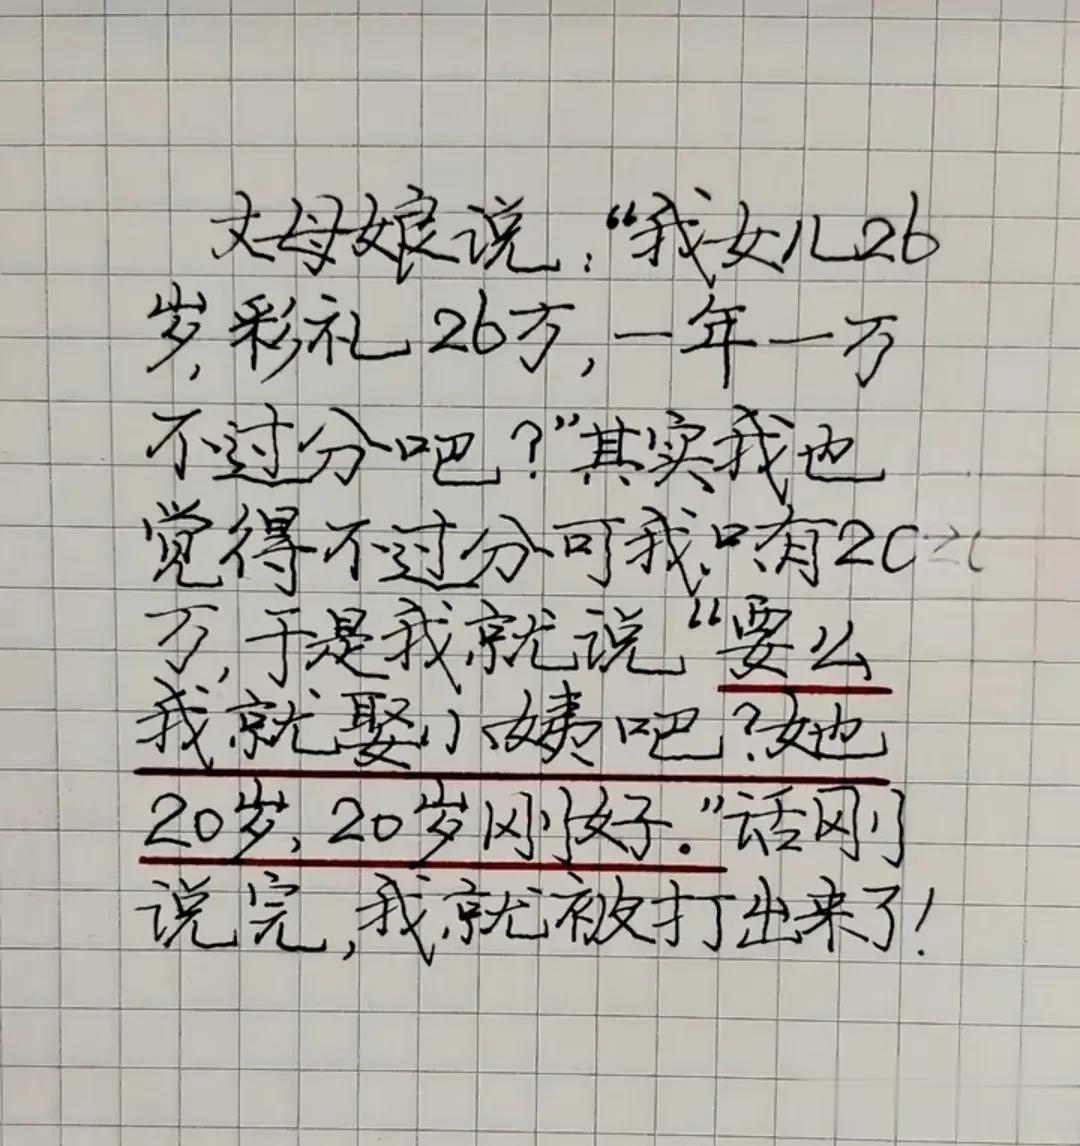 丈母娘说:“我女儿26
岁,彩礼26万,一年一万
不过分吧?”其实我也
觉得不过分可我只有20
万,于是我就说“要么
我就娶小姨吧?她也
20岁,20岁刚好.”话刚
说完,我就被打出来了!